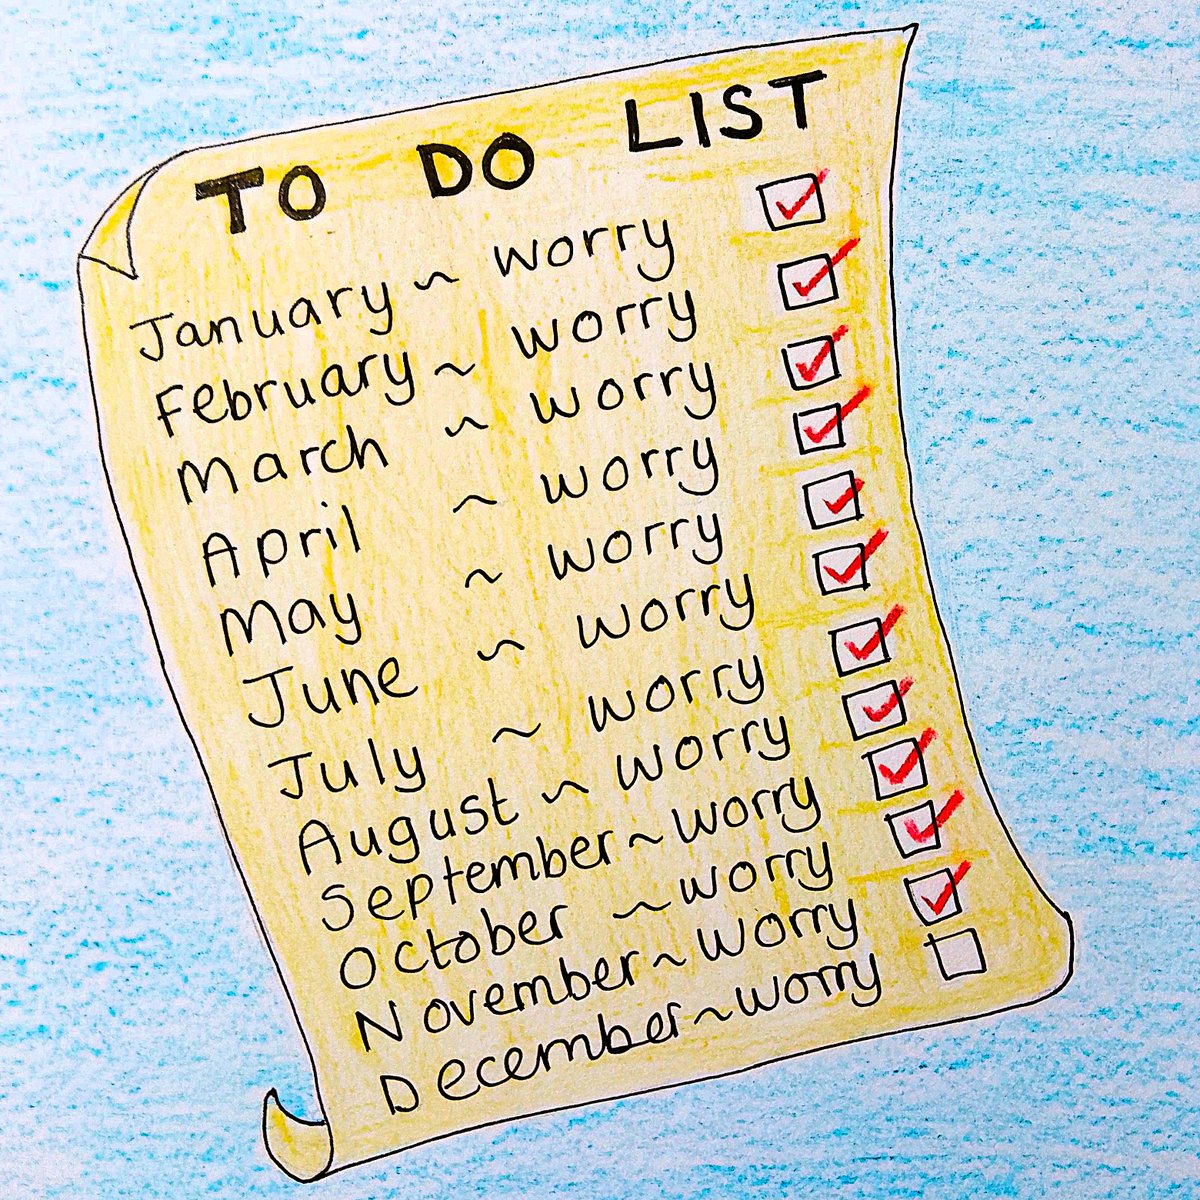 TO DO LIST
January ~ worry
February ~ worry
March ~ worry
April ~ worry
May ~ worry
June ~ worry
July ~ worry
August ~ worry
September ~ worry
October ~ worry
November ~ worry
December ~ worry